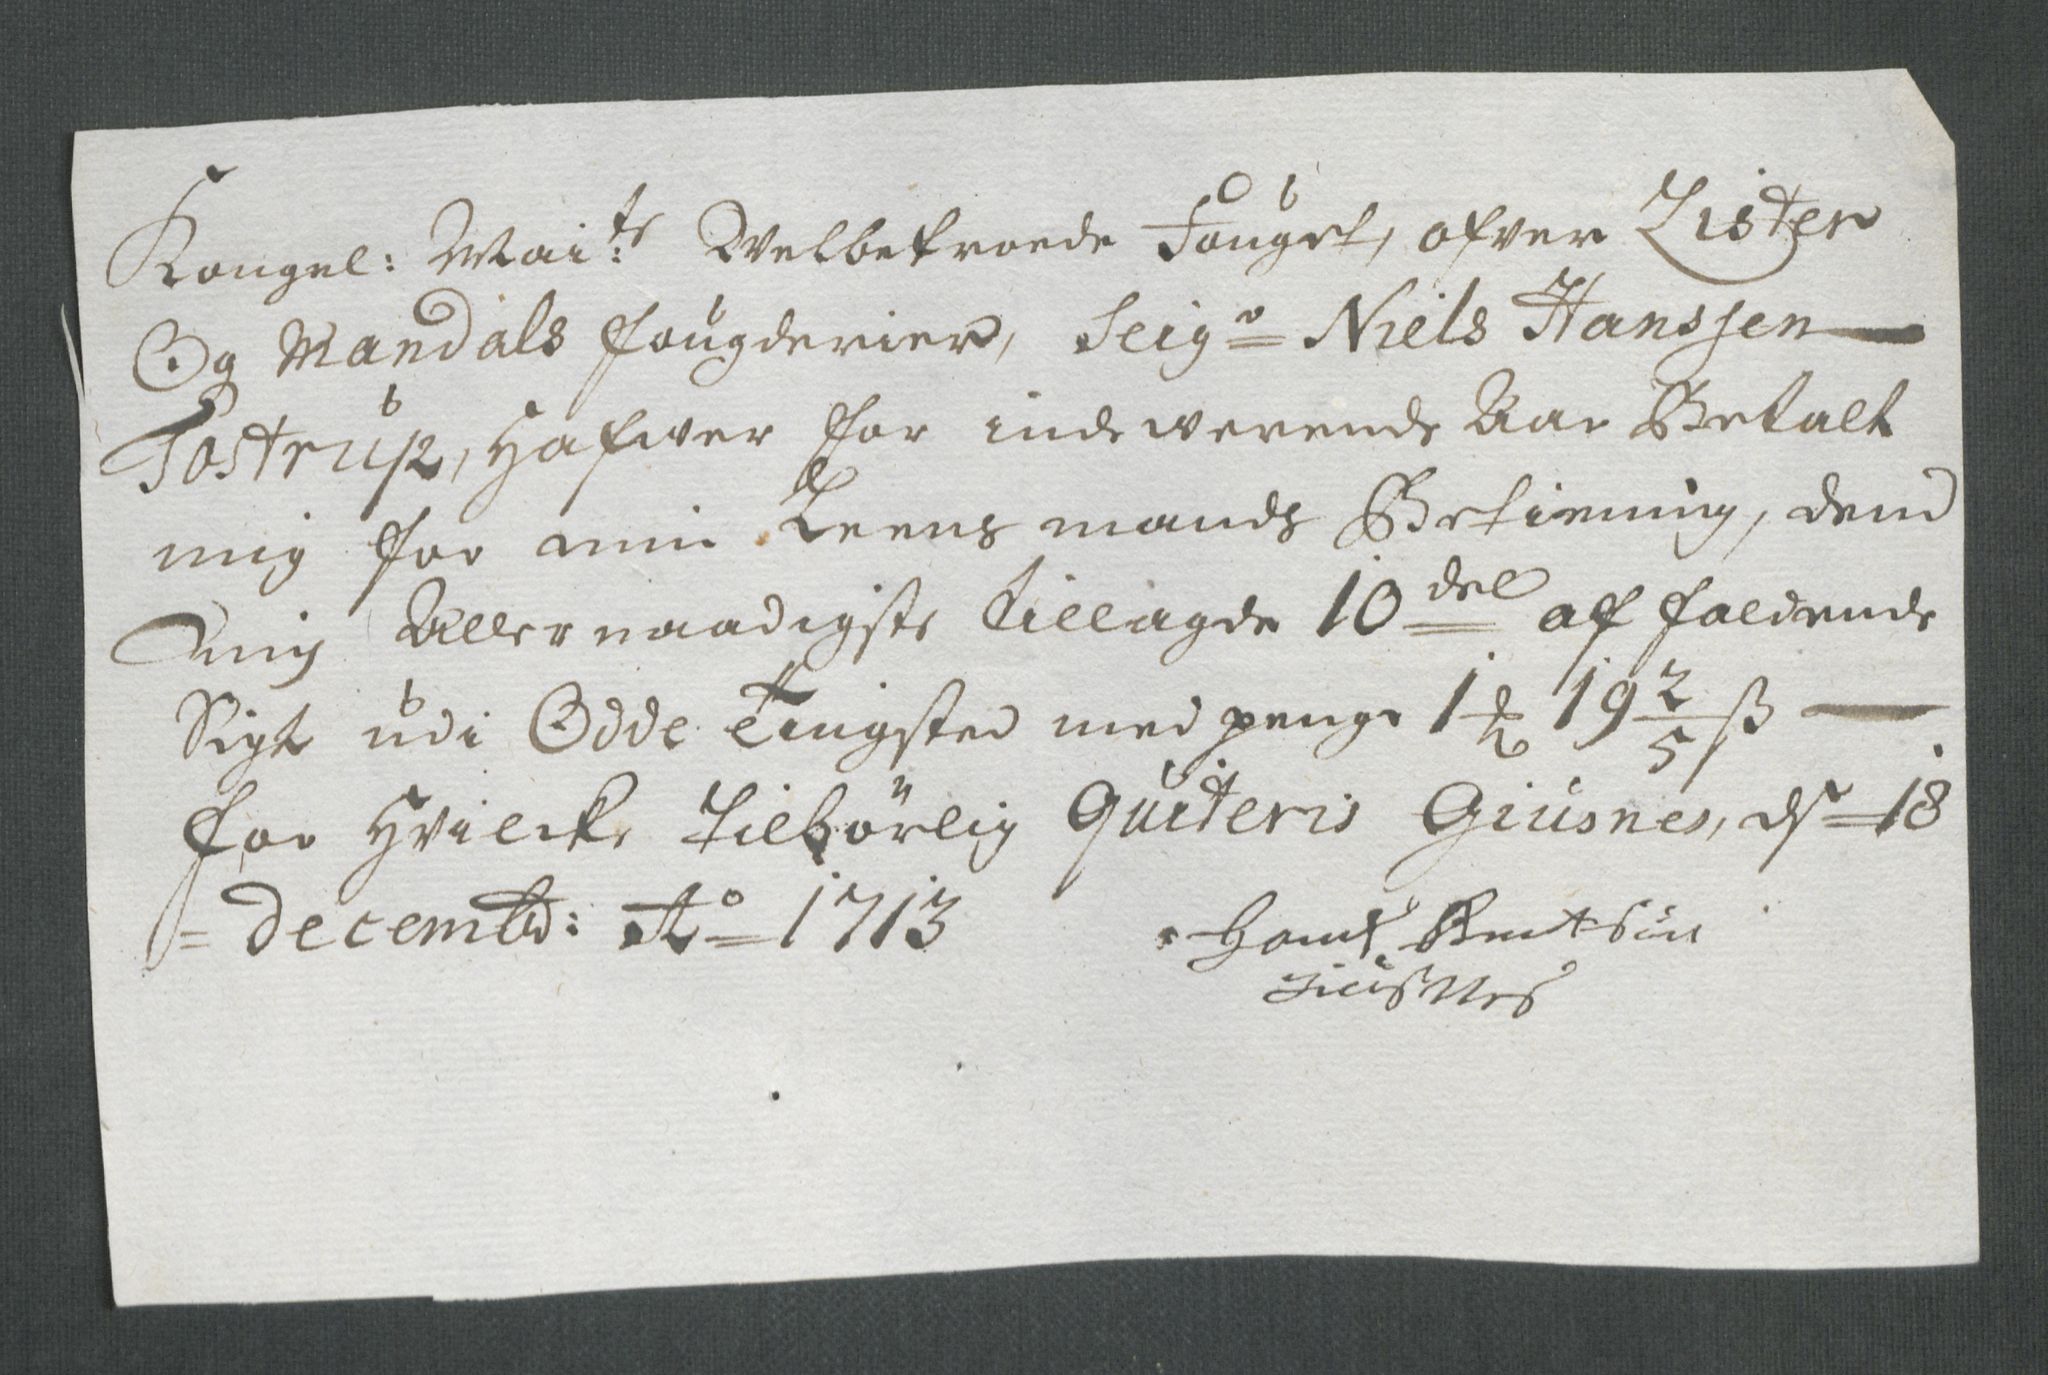 Kongel: Mai:ts Welbetroede Fouget, ofver Lister
Og Mandals fougderier, Seigr Niels Hanssen
Tostrup, Hafver for indeverende Aar Betalt
mig for min Leensmands Betiening, dend
mig Allernaadigste tillagde 10del af faldende
Sigt udi Odde Tingsted med penge 1 rd 19 2/5 ß
for Hvilcke Tilbörlig Quiteris Giusnes, ds 18
decembr: Ao 1713
Bentsön
Giusnes